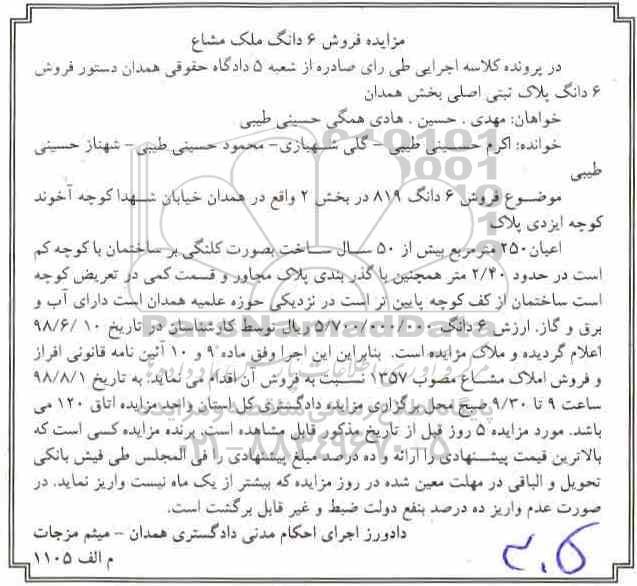 مزایده فروش ۶ دانگ ملک مشاع
در پرونده کلاسه اجرایی طی رای صادره از شعبه ۵ دادگاه حقوقی همدان دستور فروش
۶ دانگ پلاک ثبتی اصلی بخش همدان
خواهان: مهدی . حسین . هادی همگی حسینی طیبی
خوانده: اکرم حسینی طیبی – گلی شهبازی– محمود حسینی طیبی – شهناز حسینی
طیبی
موضوع فروش ۶ دانگ ۸۱۹ در بخش ۲ واقع در همدان خیابان شهدا کوچه آخوند
کوچه ایزدی پلاک
اعیان۲۵۰ مترمربع بیش از ۵۰ سال ساخت بصورت کلنگی بر ساختمان با کوچه کم
است در حدود ۲/۴۰ متر همچنین با گذر بندی پلاک مجاور و قسمت کمی در تعریض کوچه
است ساختمان از کف کوچه پایین تر است در نزدیکی حوزه علمیه همدان است دارای آب و
برق و گاز. ارزش ۶ دانگ ۵/۷۰۰/۰۰۰/۰۰۰ ریال توسط کارشناسان در تاریخ ۹۸/۶/۱۰
اعلام گردیده و ملاک مزایده است. بنابراین این اجرا وفق ماده ۹ و ۱۰ آئین نامه قانونی افراز
و فروش املاک مشاع مصوب ۱۳۵۷ نسبت به فروش آن اقدام می نماید. به تاریخ ۹۸/۸/۱
ساعت ۹ تا ۹/۳۰ صبح محل برگزاری مزایده دادگستری کل استان واحد مزایده اتاق ۱۲۰ می
باشد. مورد مزایده ۵ روز قبل از تاریخ مذکور قابل مشاهده است. برنده مزایده کسی است که
بالاترین قیمت پیشنهادی را ارائه و ده درصد مبلغ پیشنهادی را فی المجلس طی فیش بانکی
تحویل و الباقی در مهلت معین شده در روز مزایده که بیشتر از یک ماه نیست واریز نماید. در
صورت عدم واریز ده درصد بنفع دولت ضبط و غیر قابل برگشت است.
دادورز اجرای احکام مدنی دادگستری همدان – میثم مزجات
م الف ۱۱۰۵
ParsNamadData
۰۲۱-۸۸۳۴۹۶۷۰-۵